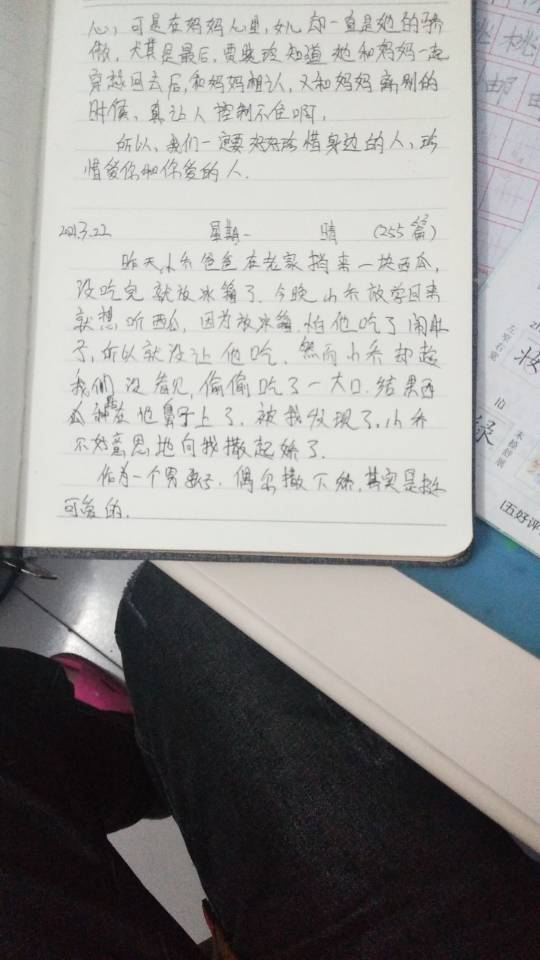 心，可是在妈妈心里，女儿却一直是她的骄
傲，尤其是最后，贾晓玲知道她和妈妈一起
穿越回去后，和妈妈相认，又和妈妈离别的
时候，真让人控制不住啊，
所以，我们一定要好好珍惜身边的人，珍
惜爱你和你爱的人.
2021.3.22 星期一 晴 (255篇)
昨天小乔爸爸在老家捎来一块西瓜，
没吃完就放冰箱了.今晚小乔放学回来
就想吃西瓜，因为放冰箱怕他吃了闹肚
子，所以就没让他吃.然而小乔却趁
我们没看见，偷偷吃了一大口.结果西
瓜 在他鼻子上了.被我发现了，小乔
不好意思地向我撒起娇了.
作为一个男孩子.偶尔撒下娇，其实是挺
可爱的.
桃
邮
妆
左窄右宽
末捺舒展
(五好评